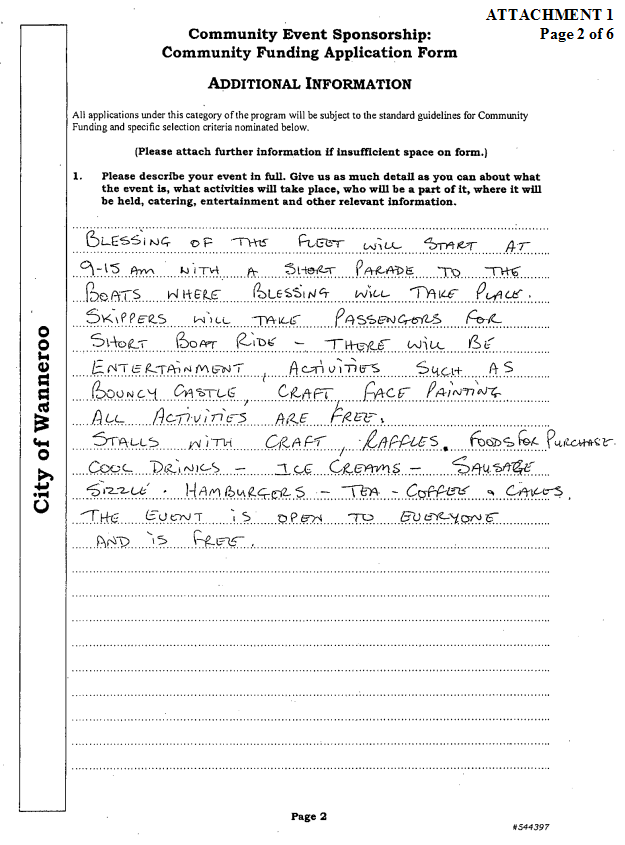 ATTACHMENT 1
Page 2 of 6
Community Event Sponsorship:
Community Funding Application Form
ADDITIONAL INFORMATION
All applications under this category of the program will be subject to the standard guidelines for Community
Funding and specific selection criteria nominated below.
(Please attach further information if insufficient space on form.)
1. Please describe your event in full. Give us as much detail as you can about what
the event is, what activities will take place, who will be a part of it, where it will
be held, catering, entertainment and other relevant information.
BLESSING OF THE FLEET WILL START AT
9-15 AM WITH A SHORT PARADE TO THE
BOATS WHERE BLESSING WILL TAKE PLACE.
SKIPPERS WILL TAKE PASSENGERS FOR
SHORT BOAT RIDE - THERE WILL BE
ENTERTAINMENT, ACTIVITIES SUCH AS
BOUNCY CASTLE, CRAFT, FACE PAINTING
ALL ACTIVITIES ARE FREE.
STALLS WITH CRAFT, RAFFLES. FOODS FOR PURCHASE.
COOL DRINKS - ICE CREAMS - SAUSAGE
SIZZLE. HAMBURGERS - TEA - COFFEE & CAKES.
THE EVENT IS OPEN TO EVERYONE
AND IS FREE.
City of Wanneroo
Page 2
#544397